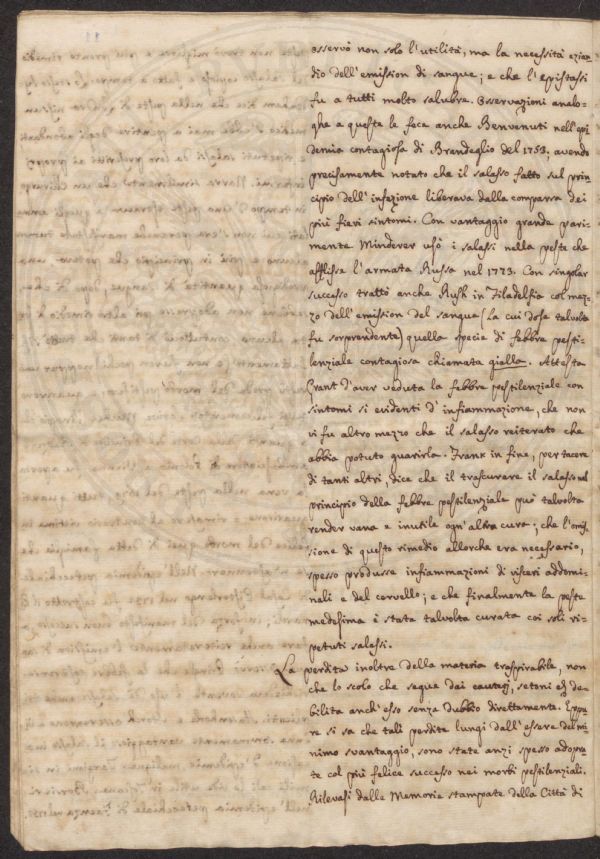 osservò non solo l'utilità, ma la necessità ezian-
dio dell'emission di sangue; e che l'epistassi
fu a tutti molto salubre. Osservazioni analo-
ghe a queste le fece anche Benvenuti nell'epi
demia contagiosa di Brandeglio del 1753. avendo
precisamente notato che il salasso fatto sul prin-
cipio dell'infezione liberava dalla comparsa dei
più fieri sintomi. Con vantaggio grande pari-
mente Minderer usò i salassi nella peste che
afflisse l'armata Russa nel 1773. Con singolar
successo trattò anche Rush in Filadelfia col mez-
zo dell'emission del sangue (la cui dose talvolta
fu sorprendente) quella specie di febbre pesti-
lenziale contagiosa chiamata gialla. Attesta
Grant d'aver veduta la febbre pestilenziale con
sintomi sì evidenti d'infiammazione, che non
vi fu altro mezzo che il salasso reiterato che
abbia potuto guarirla. Frank in fine, per tacere
di tanti altri, dice che il trascurare il salasso nel
principio della febbre pestilenziale può talvolta
render vana e inutile ogn'altra cura; che l'omis
sione di questo rimedio allorche era necessario,
spesso produsse infiammazioni di visceri addomi-
nali e del corvello; e che finalmente la peste
medesima è stata talvolta curata coi soli ri-
petuti salassi.
La perdita inoltre della materia traspirabile, non
che lo scolo che segue dai cauterj, setoni de-
bilita anch'esso senza dubbio direttamente. Eppu
re si sa che tali perdite lungi dall'essere del mi
nimo svantaggio, sono state anzi spesso adopra
te col più felice successo nei morbi pestilenziali.
Rilevasi dalle Memorie stampate della Città di